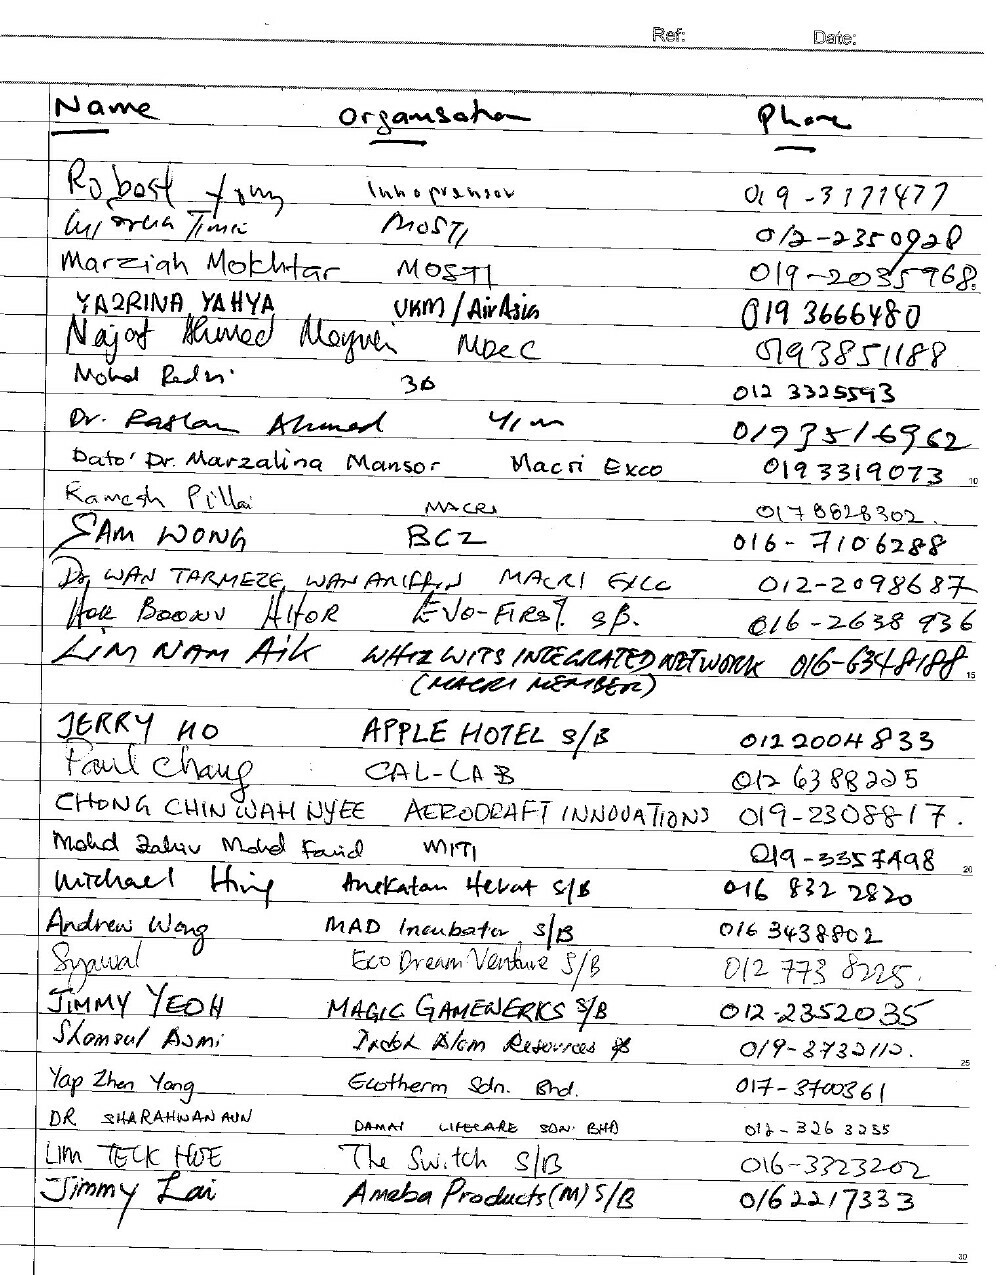 Ref: Date:
Name Organisation Phone
Robest Innoprensor 019-3171477
MOSTI 012-2350928
Marziah Mokhtar MOSTI 019-2035968
YAZRINA YAHYA UKM/AirAsia 019 3666480
Najat Ahmed MDeC 0193851188
Mohd Redzi 36 012 3325593
Dr. Raslan Ahmad 0193516962
Dato' Dr. Marzalina Mansor Macri Exco 0193319073 10
Ramesh Pillai MACRI 0178828302.
SAM WONG BCZ 016-7106288
Dr, WAN TARMEZE WAN ARIFFIN MACRI EXCO 012-2098687
EVO-FIRST SB. 016-2638936
LIM NAM AIK WHIZ WITS INTEGRATED NETWORK 016-6348188 15
(MACRI MEMBER)
JERRY HO APPLE HOTEL S/B 012 2004833
Paul Chang CAL-LAB 012 6388225
CHONG CHIN WAH NYEE AERODRAFT INNOVATIONS 019-2308817.
Mohd Mohd Farid MITI 019-3357498 20
Michael Hing Anekatan Hebat S/B 016 832 2820
Andrew Wong MAD Incubator S/B 016 3438802
Syawal Eco Dream Venture S/B 012 773 8225.
JIMMY YEOH MAGIC GAMEWERKS S/B 012-2352035
Shamsul Asmi Indah Alam Resources 019-3732112. 25
Yap Zhen Yang Ecotherm Sdn. Bhd. 017-3700361
DR SHARAHWANAUN DAMAI LIFECARE SDN BHD 012-326 3255
LIM TECK HUE The Switch S/B 016-3323202
Jimmy Lai Ameba Products (M) S/B 016 2217333
30